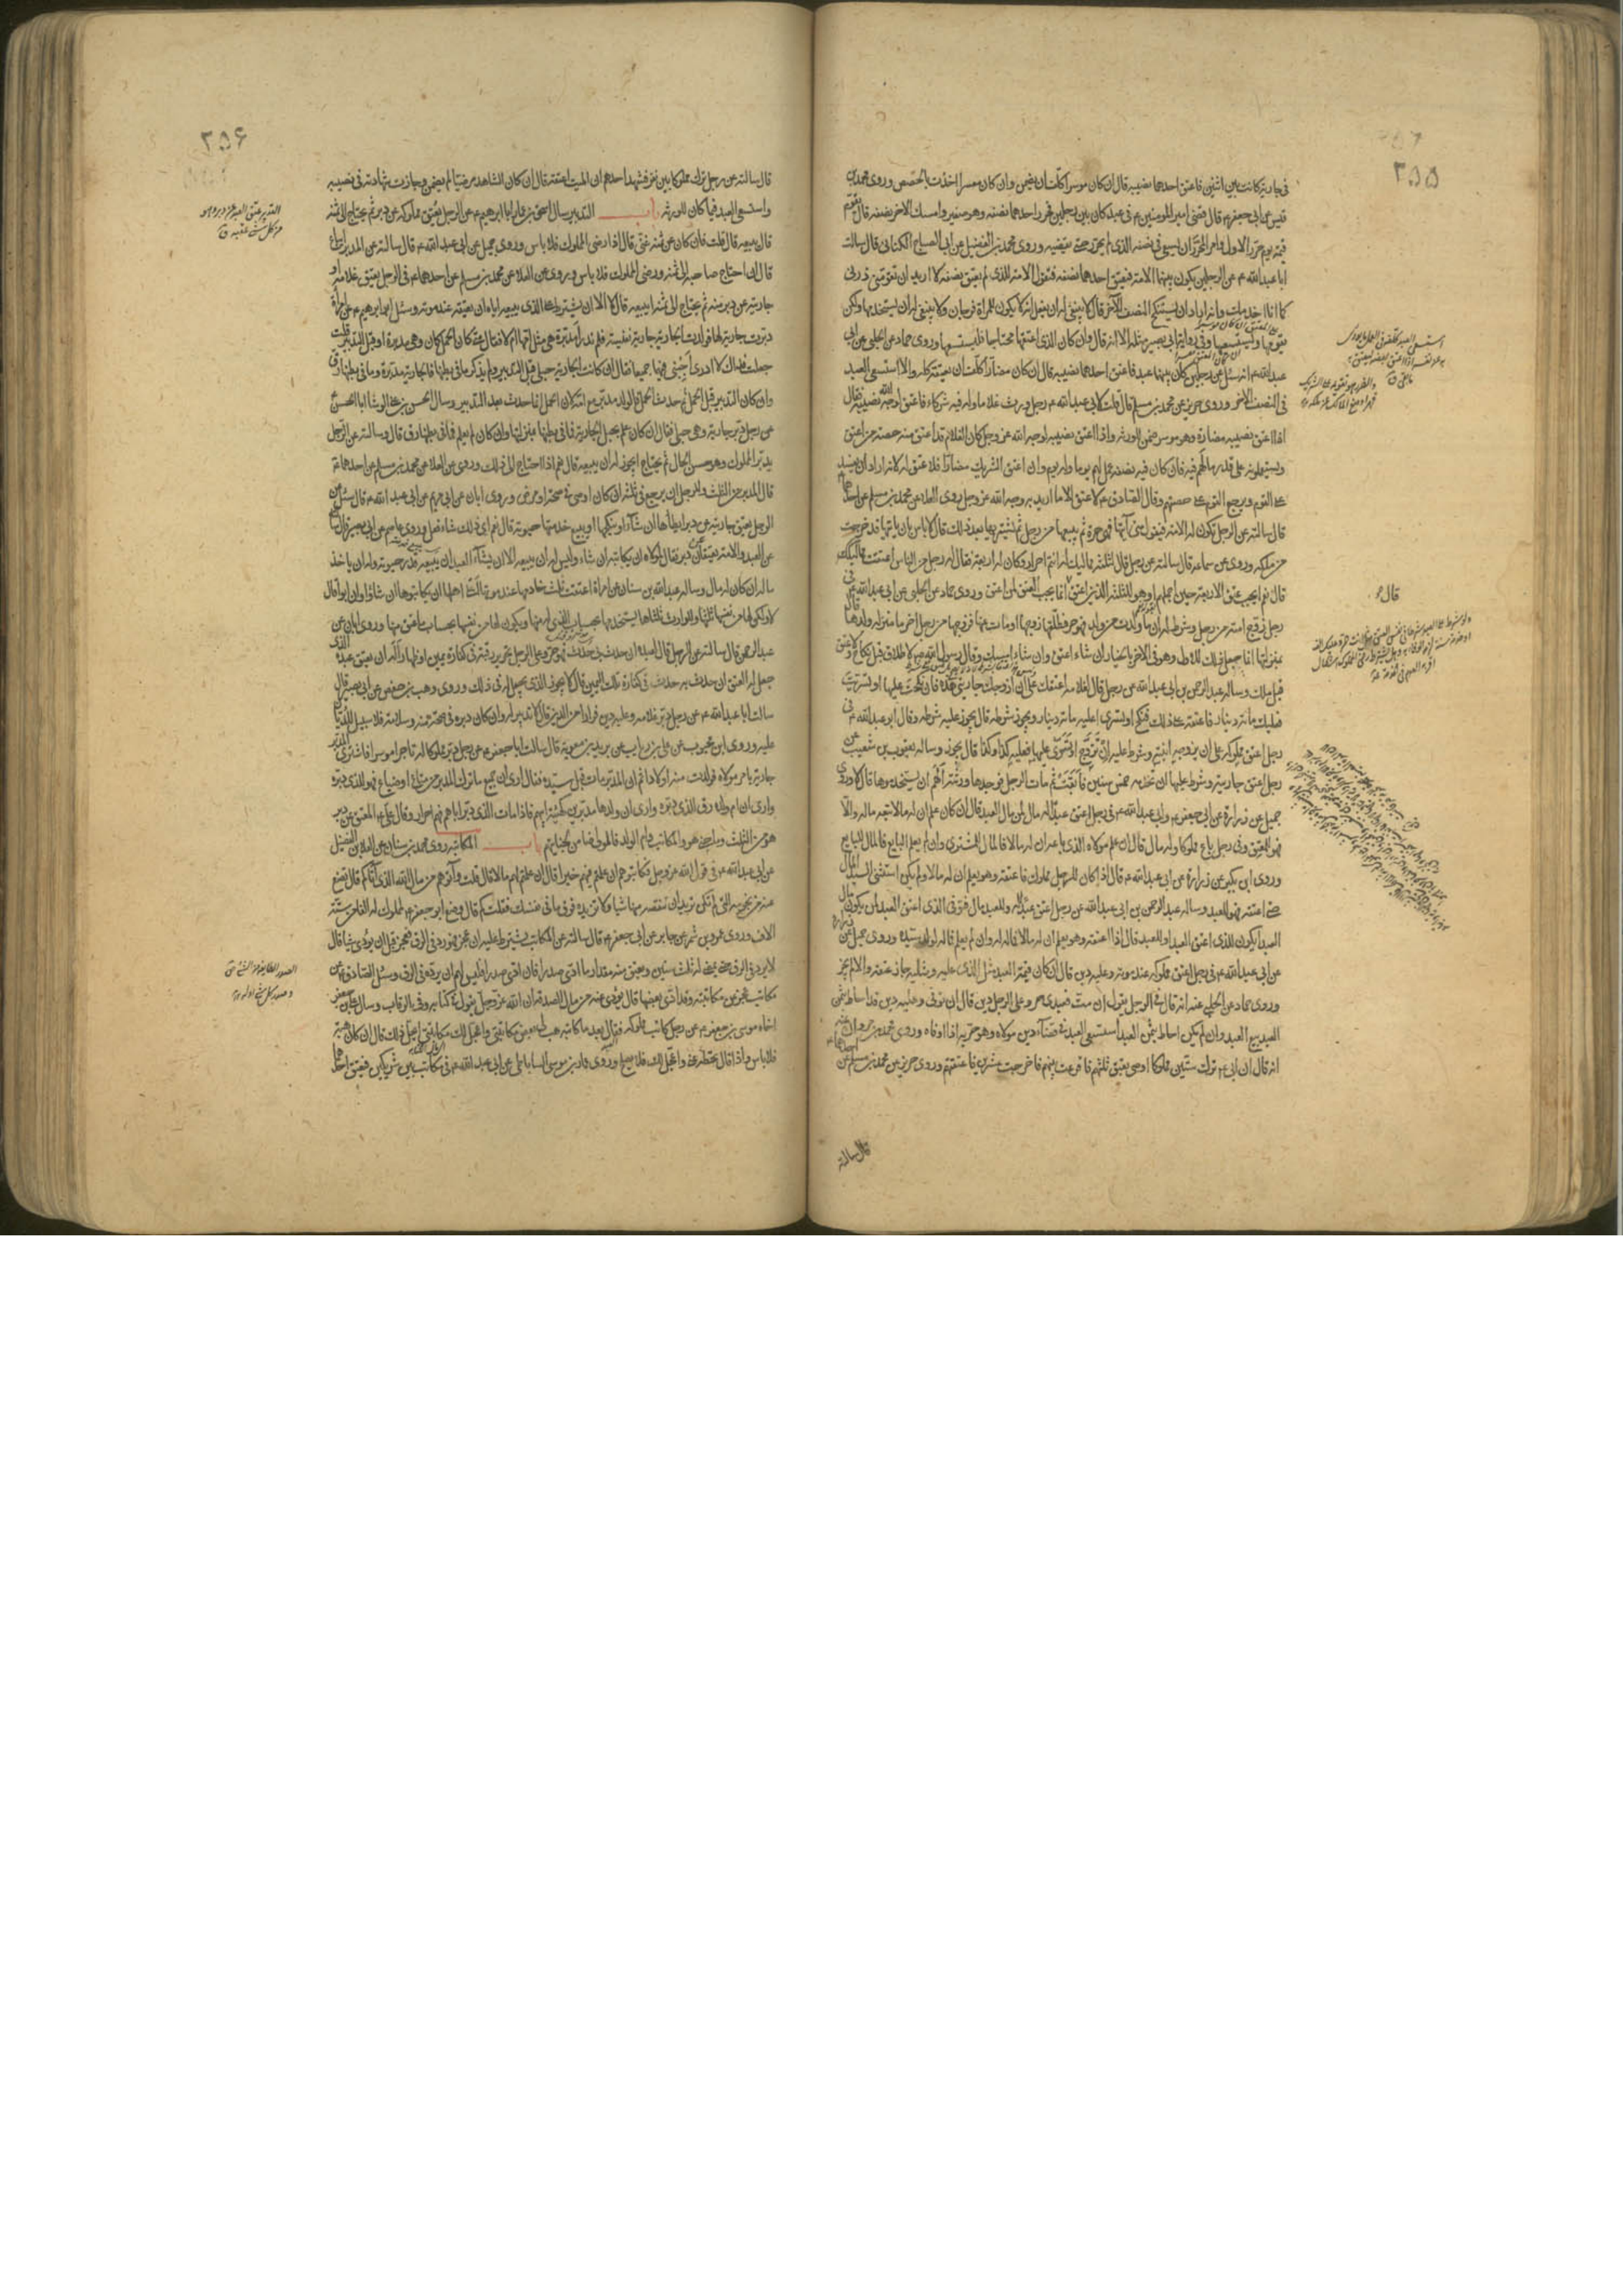 ٢٥٥
فى جارية كانت بين اثنين فاعتق احدهما نصيبه قال ان كان موسرا كلّف ان يضمن وان كان معسرا اخذت بالحصص وروى محمد بن
قيس عن ابى جعفر ع قال قضى امير المومنين ع فى عبد كان بين رجلين فحرر احدهما نصفه وهو صغير وامسك الاخر نصفه قال يقوّم
قيمة يوم حرّر الاول وامر المحرّر ان يسعى فى نصفه الذى لم يحرّر حتى يقضيه وروى محمد بن الفضيل عن ابى الصباح الكنانى قال سالت
ابا عبد الله ع عن الرجلين يكون بينهما الامة فيعتق احدهما نصفه فتقول الامة للذى لم يعتق نصفه لا اريد ان تقوّمنى ذرنى
كما انا اخدمك وانه اراد ان يستنكح النصف الاخر قال لا ينبغى له ان يفعل انه لا يكون للمراة فرجان ولا ينبغى له ان يستخدمها ولكن
يقوّمها ويستسعيها وفى رواية ابى بصير مثله الا انه قال وان كان الذى اعتقها محتاجا فليستسعها وروى حماد عن الحلبى عن ابى
عبد الله ع انه سئل عن رجلين كان بينهما عبد فاعتق احدهما نصيبه قال ان كان مضارا كلّف ان يعتقه كله والا استسعى العبد
فى النصف الاخر وروى حريز عن محمد بن مسلم قال قلت لابى عبد الله ع رجل ورث غلاما وله فيه شركاء فاعتق لوجه الله نصيبه فقال
اذا اعتق نصيبه مضارة وهو موسر ضمن للورثة واذا اعتق نصيبه لوجه الله عز وجل كان الغلام قد اعتق منه حصة من اعتق
ويستعملونه على قدر مالهم فيه فان كان فيه نصفه عمل لهم يوما وله يوم وان اعتق الشريك مضارا فلا عتق له لانه اراد ان يفسد
على القوم ويرجع القوم على حصصهم وقال الصادق ع لا عتق الا ما اريد به وجه الله عز وجل وروى العلا عن محمد بن مسلم عن احدهما ع
قال سالته عن الرجل تكون له الامة فيقول متى آتيها فهى حرة ثم يبيعها من رجل ثم يشتريها بعد ذلك قال لا باس بان ياتيها قد خرجت
من ملكه وروى عن سماعة قال سالته عن رجل قال لثلثة مماليك له انتم احرار وكان له اربعة فقال له رجل من الناس اعتقت مماليكك
قال نعم ايجب عتق الاربعة حين اجملهم او هو للثلثة الذين اعتق انما يجب العتق لمن اعتق وروى حماد عن الحلبى عن ابى عبد الله ع فى
رجل زوج امته من رجل وشرط له ان ما ولدت من ولد فهو حر فطلقها زوجها او مات عنها فزوجها من رجل اخر ما منزلة ولدها قال
بمنزلتها انما جعل ذلك للاول وهو فى الاخر بالخيار ان شاء اعتق وان شاء امسك وقال رسول الله ص لا طلاق قبل نكاح ولا عتق
قبل ملك وساله عبد الرحمن بن ابى عبد الله عن رجل قال لغلامه اعتقك على ان ازوجك جاريتى هذه فان نكحت عليها او تسريت
فعليك مائة دينار فاعتقه على ذلك فنكح او تسرى اعليه مائة دينار ويجوز شرطه قال يجوز عليه شرطه وقال ابو عبد الله ع فى
رجل اعتق مملوكه على ان يزوجه ابنته وشرط عليه ان تزوج او تسرى عليها فعليه كذا وكذا قال يجوز وساله يعقوب بن شعيب عن
رجل اعتق جاريته وشرط عليها ان تخدمه خمس سنين فابقت ثم مات الرجل فوجدها ورثته الهم ان يستخدموها قال لا وروى
جميل عن زرارة عن ابى جعفر ع وابى عبد الله ع فى رجل اعتق عبدا له مال لمن مال العبد قال ان كان علم ان له مالا تبعه ماله والا
فهو للمعتق وفى رجل باع مملوكا وله مال قال ان علم مولاه الذى باعه ان له مالا فالمال للمشترى وان لم يعلم البايع فالمال للبايع
وروى ابن بكير عن زرارة عن ابى عبد الله ع قال اذا كان للرجل مملوك فاعتقه وهو يعلم ان له مالا ولم يكن استثنى السيد المال
حين اعتقه فهو للعبد وساله عبد الرحمن بن ابى عبد الله عن رجل اعتق عبدا له وللعبد مال فتوفى الذى اعتق العبد لمن يكون مال
العبد ايكون للذى اعتق العبد او للعبد قال اذا اعتقه وهو يعلم ان له مالا فماله له وان لم يعلم فماله لولد سيده وروى جميل عن زرارة
عن ابى عبد الله ع فى رجل اعتق مملوكه عند موته وعليه دين قال ان كان قيمة العبد مثل الذى عليه ومثليه جاز عتقه والا لم يجز
وروى حماد عن الحلبى عنه انه قال فى الرجل يقول ان مت فعبدى حر وعلى الرجل دين قال ان توفى وعليه دين قد احاط بثمن
العبد بيع العبد وان لم يكن احاط بثمن العبد استسعى العبد فى قضآء دين مولاه وهو حرّ اذا اوفاه وروى محمد بن مروان عنه
انه قال ان ابى ع ترك ستين مملوكا اوصى بعتق ثلثهم فاقرعت بينهم فاخرجت عشرين فاعتقتهم وروى حريز عن محمد بن مسلم عن احدهما ع
قال سالته
٢٥٦
قال سالته عن رجل ترك مملوكا بين نفر فشهد احدهم ان الميت اعتقه قال ان كان الشاهد مرضيا لم يضمن وجازت شهادته فى نصيبه
واستسعى العبد فيما كان للورثة باب التدبير سال اسحق بن عمار ابا ابراهيم ع عن الرجل يعتق مملوكه عن دبر ثم يحتاج الى ثمنه
قال يبيعه قال قلت فان كان عن ثمنه غنى قال اذا رضى المملوك فلا باس وروى جميل عن ابى عبد الله ع قال سالته عن المدبر ايباع
قال ان احتاج صاحبه الى ثمنه ورضى المملوك فلا باس وروى عن العلا عن محمد بن مسلم عن احدهما ع فى الرجل يعتق غلامه او
جاريته عن دبر منه ثم يحتاج الى ثمنه ايبيعه قال لا الا ان يشترط على الذى يبيعه اياه ان يعتقه عند موته وسئل ابو ابراهيم ع عن امراة
دبرت جارية لها فولدت الجارية جارية نفيسة فلم تدر امدبرة هى مثل امها ام لا فقال متى كان الحمل كان وهى مدبرة او قبل التدبير قلت
جعلت فداك لا ادرى اجبنى فيهما جميعا فقال ان كانت الجارية حبلى قبل التدبير ولم يذكر ما فى بطنها فالجارية مدبرة وما فى بطنها رق
وان كان التدبير قبل الحمل ثم حدث الحمل فالولد مدبر مع امه لان الحمل انما حدث بعد التدبير وسال الحسن بن على الوشا ابا الحسن ع
عن رجل دبر جارية وهى حبلى فقال ان كان علم بحبل الجارية فما فى بطنها بمنزلتها وان كان لم يعلم فما فى بطنها رق قال وسالته عن الرجل
يدبر المملوك وهو حسن الحال ثم يحتاج ايجوز له ان يبيعه قال نعم اذا احتاج الى ذلك وروى عن العلا عن محمد بن مسلم عن احدهما ع
قال المدبر من الثلث وللرجل ان يرجع فى ثلثه ان كان اوصى فى صحة او مرض وروى ابان عن ابى مريم عن ابى عبد الله ع قال سئل عن
الرجل يعتق جاريته عن دبر ايطأها ان شآء او ينكحها او يبيع خدمتها حيوته قال نعم اى ذلك شاء فعل وروى عاصم عن ابى بصير قال سالته
عن العبد والامة يعتقان عن دبر فقال لمولاه ان يكاتبه ان شاء وليس له ان يبيعه الا ان يشآء العبد ان يبيعه قدر حيوته وله ان ياخذ
ماله ان كان له مال وساله عبد الله بن سنان عن امراة اعتقت ثلث خادمها عند موتها اعلى اهلها ان يكاتبوها ان شاؤا وان ابوا قال
لا ولكن لها من نفسها ثلثها وللوارث ثلثاها يستخدمها بحساب الذى له منها ويكون لها من نفسها بحساب ما عتق منها وروى ابان عن
عبد الرحمن قال سالته عن الرجل قال لعبده ان حدث بى حدث فهو حر وعلى الرجل تحرير رقبة فى كفارة يمين او ظهار اله ان يعتق عبده الذى
جعل له العتق ان حدث به حدث فى كفارة تلك اليمين قال لا يجوز الذى يجعل له فى ذلك وروى وهيب بن حفص عن ابى بصير قال
سالت ابا عبد الله ع عن رجل دبر غلامه وعليه دين فرارا من الدين قال لا تدبير له وان كان دبره فى صحة منه وسلامة فلا سبيل للديان
عليه وروى ابن محبوب عن على بن رئاب عن بريد بن معوية قال سالت ابا جعفر ع عن رجل دبر مملوكا له تاجرا موسرا فاشترى المدبر
جارية بامر مولاه فولدت منه اولادا ثم ان المدبر مات قبل سيده فقال ارى ان جميع ما ترك المدبر من متاع او ضياع فهو للذى دبره
وارى ان ام ولده رق للذى دبره وارى ان ولدها مدبرين كهيئة ابيهم فاذا مات الذى دبر اباهم فهم احرار وقال على ع المعتق عن دبر
هو من الثلث وما جنى هو والمكاتب وام الولد فالمولى ضامن لجنايتهم باب المكاتبة روى محمد بن سنان عن العلا بن الفضيل
عن ابى عبد الله ع فى قول الله عز وجل فكاتبوهم ان علمتم فيهم خيرا قال ان علمتم لهم مالا قال قلت وآتوهم من مال الله الذى آتاكم قال تضع
عنه من نجومه التى لم تكن تريد ان تنقصه منها شيا ولا تزيده فوق ما فى نفسك فقلت كم قال وضع ابو جعفر ع لمملوك له الفا من ستة
الاف وروى عمرو بن شمر عن جابر عن ابى جعفر ع قال سالته عن المكاتب يشترط عليه ان عجز فهو رد فى الرق فعجز قبل ان يؤدى شيا قال
لا يرد فى الرق حتى يمضى له ثلث سنين ويعتق منه مقدار ما ادى صدرا فان ادى صدرا فليس لهم ان يردوه فى الرق وسئل الصادق ع عن
مكاتب عجز عن مكاتبته وقد ادى بعضها قال يؤدى عنه من مال الصدقة ان الله عز وجل يقول فى كتابه وفى الرقاب وسال على بن جعفر
اخاه موسى بن جعفر ع عن رجل كاتب مملوكه فقال بعد ما كاتبه هب لى بعض مكاتبتى واعجل لك مكاتبتى ايحل ذلك قال ان كان هبة
فلا باس واذا قال تحط عنى واعجل لك فلا يصلح وروى عمار بن موسى الساباطى عن ابى عبد الله ع فى مكاتب بين شريكين فيعتق احدهما